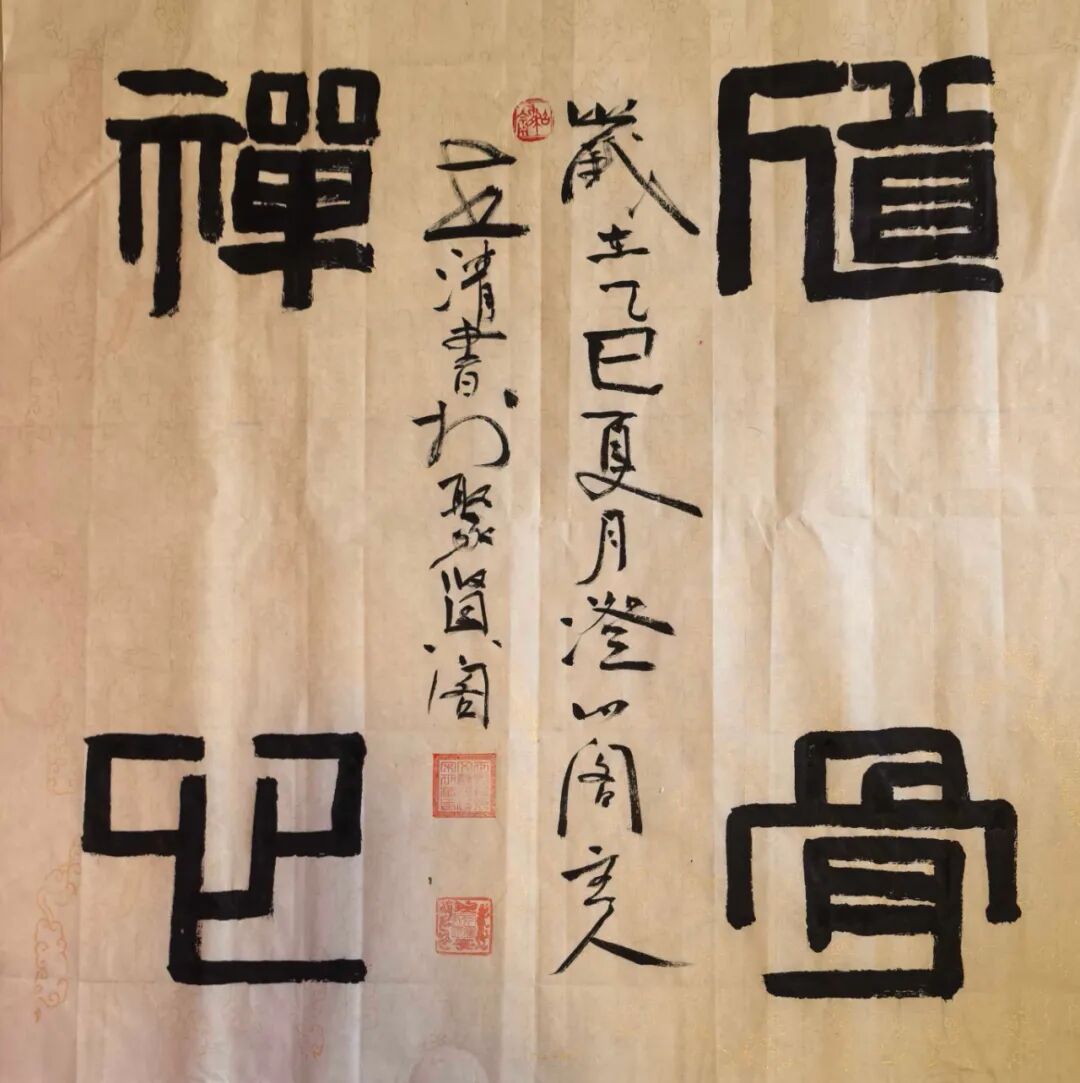 道骨
禅心
歲在乙巳夏月澄心阁主人
立清書於聚賢阁